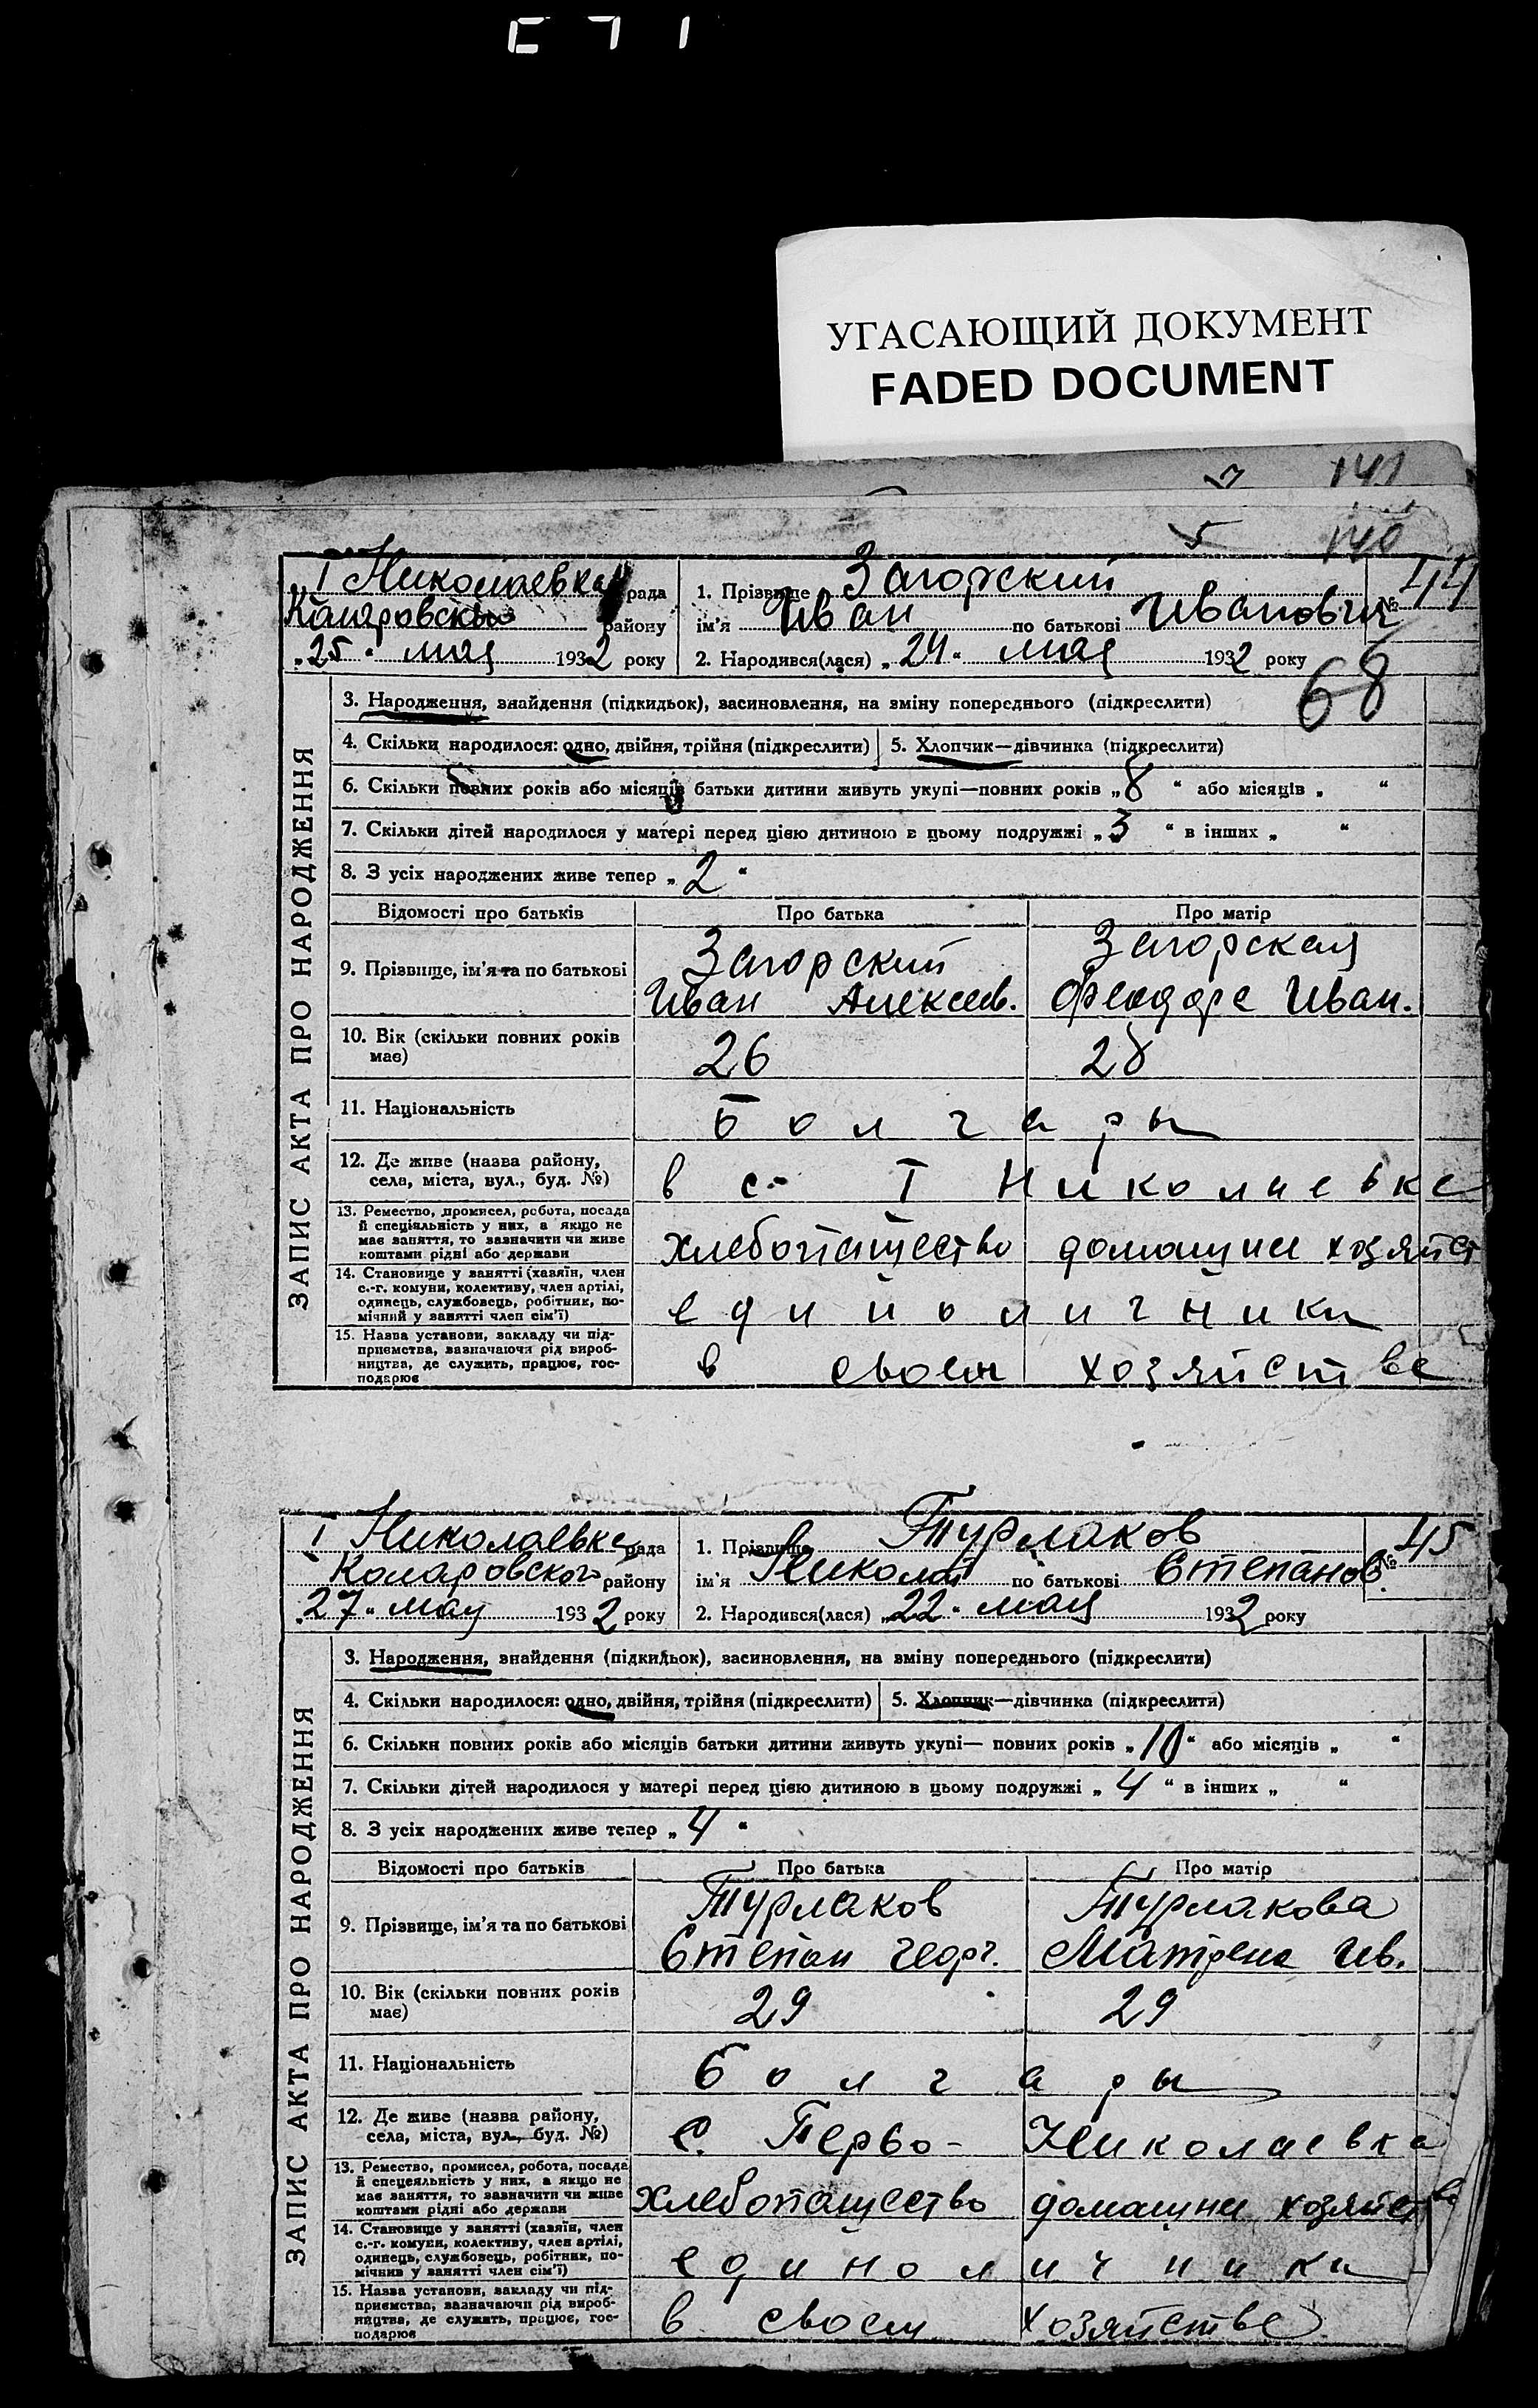 УГАСАЮЩИЙ ДОКУМЕНТ
FADED DOCUMENT
141
5 140
I Николаевка рада
району
25 " мая 1932 року
1. Прізвище Загорский № 44
ім'я Иван по батькові Иванович
2. Народився(лася) „ 24 " мая 1932 року
68
ЗАПИС АКТА ПРО НАРОДЖЕННЯ
3. Народження, знайдення (підкидьок), засиновлення, на зміну попереднього (підкреслити)
4. Скільки народилося: одно, двійня, трійня (підкреслити) 5. Хлопчик—дівчинка (підкреслити)
6. Скільки повних років або місяців батьки дитини живуть укупі—повних років „ 8 " або місяців „ "
7. Скільки дітей народилося у матері перед цією дитиною в цьому подружжі „ 3 " в інших „ "
8. З усіх народжених живе тепер „ 2 "
Відомості про батьків Про батька Про матір
9. Прізвище, ім'я та по батькові
Загорский
Иван Алексеев.
Загорская
Феодора Иван.
10. Вік (скільки повних років
має)
26 28
11. Національність болгары
12. Де живе (назва району,
села, міста, вул., буд. №)
в с. I Николаевке
13. Ремество, промисел, робота, посада
й спеціяльність у них, а якщо не
має заняття, то зазначити чи живе
коштами рідні або держави
хлебопашество домашнее хозяйст
14. Становище у занятті (хазяїн, член
с.-г. комуни, колективу, член артілі,
одинець, службовець, робітник, по-
мічний у занятті член сім'ї)
единоличники
15. Назва установи, закладу чи під-
приємства, зазначаючи рід вироб-
ництва, де служить, працює, гос-
подарює
в своем хозяйстве
I Николаевка рада
Коларовского району
27 " мая 1932 року
1. Прізвище Турлаков № 45
ім'я Николай по батькові Степанов.
2. Народився(лася) „ 22 " мая 1932 року
ЗАПИС АКТА ПРО НАРОДЖЕННЯ
3. Народження, знайдення (підкидьок), засиновлення, на зміну попереднього (підкреслити)
4. Скільки народилося: одно, двійня, трійня (підкреслити) 5. Хлопчик—дівчинка (підкреслити)
6. Скільки повних років або місяців батьки дитини живуть укупі— повних років „ 10 " або місяців „ "
7. Скільки дітей народилося у матері перед цією дитиною в цьому подружжі „ 4 " в інших „ "
8. З усіх народжених живе тепер „ 4 "
Відомості про батьків Про батька Про матір
9. Прізвище, ім'я та по батькові
Турлаков
Степан Георг.
Турлакова
Матрена Ив.
10. Вік (скільки повних років
має)
29 29
11. Національність болгары
12. Де живе (назва району,
села, міста, вул., буд. №)
с. Перво- Николаевка
13. Ремество, промисел, робота, посада
й спецеяльність у них, а якщо не
має заняття, то зазначити чи живе
коштами рідні або держави
хлебопашество домашнее хозяйство
14. Становище у занятті (хазяїн, член
с.-г. комуни, колективу, член артілі,
одинець, службовець, робітник, по-
мічний у занятті член сім'ї)
единоличники
15. Назва установи, закладу чи під-
приємства, зазначаючи рід вироб-
ництва, де служить, працює, гос-
подарює
в своем хозяйстве